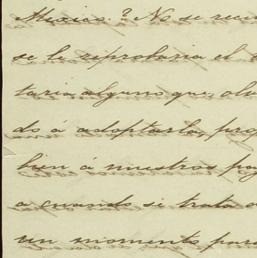 Mexico? No se reci
se le reprobaria el s
taria alguno que, olv
do á adoptarla, pro
bien á nuestros pa
a cuando se trata d
un momento para